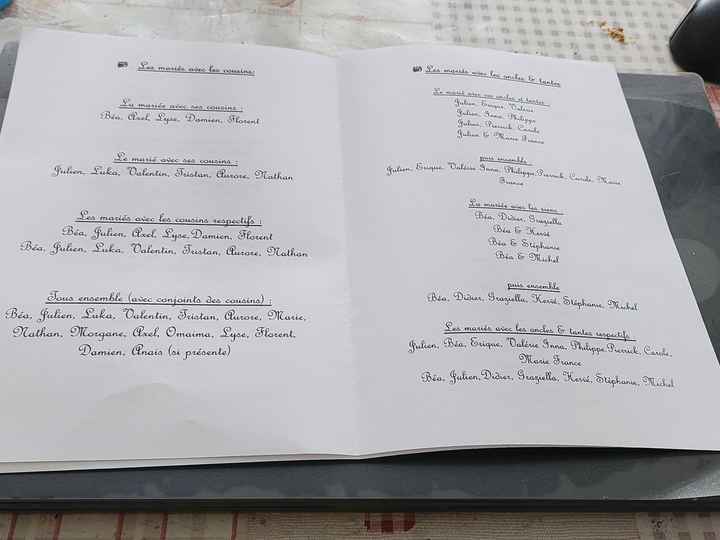 Les mariés avec les cousins:
La mariée avec ses cousins :
Béa, Axel, Lyse, Damien, Florent
Le marié avec ses cousins :
Julien, Luka, Valentin, Tristan, Aurore, Nathan
Les mariés avec les cousins respectifs :
Béa, Julien, Axel, Lyse, Damien, Florent
Béa, Julien, Luka, Valentin, Tristan, Aurore, Nathan
Tous ensemble (avec conjoints des cousins) :
Béa, Julien, Luka, Valentin, Tristan, Aurore, Marie,
Nathan, Morgane, Axel, Omaima, Lyse, Florent,
Damien, Anais (si présente)
Les mariés avec les oncles & tantes
Le marié avec ses oncles et tantes :
Julien, Erique, Valérie
Julien, Inna, Philippe
Julien, Pierrick, Carole
Julien & Marie France
puis ensemble :
Julien, Erique, Valérie Inna, Philippe,Pierrick, Carole, Marie
France
La mariée avec les siens :
Béa, Didier, Graziella
Béa & Hervé
Béa & Stéphanie
Béa & Michel
puis ensemble
Béa, Didier, Graziella, Hervé, Stéphanie, Michel
Les mariés avec les oncles & tantes respectifs :
Julien, Béa, Erique, Valérie Inna, Philippe,Pierrick, Carole,
Marie France
Béa, Julien,Didier, Graziella, Hervé, Stéphanie, Michel